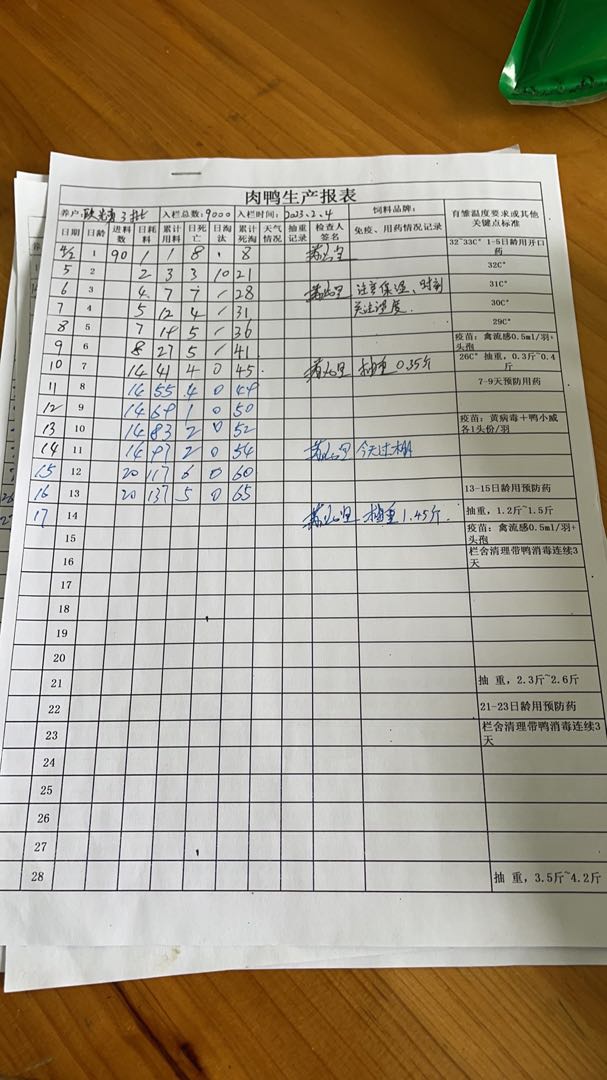 肉鸭生产报表
养户: 3批 入栏总数: 9000 入栏时间: 2023.2.4 饲料品牌: 育雏温度要求或其他关键点标准
日期 日龄 进料数 日耗料 累计用料 日死亡 日淘汰 累计死淘 天气情况 抽重记录 检查人签名 免疫、用药情况记录
4/2 1 90 1 1 8 · 8 32~33C° 1-5日龄用开口药
5 2 2 3 3 10 21 32C°
6 3 4 7 7 / 28 注意保温、时刻 31C°
7 4 5 12 4 / 31 关注湿度. 30C°
8 5 7 19 5 / 36 29C°
9 6 8 27 5 / 41 疫苗：禽流感0.5ml/羽+头孢
10 7 14 41 4 0 45 抽重0.35斤 26C° 抽重，0.3斤~0.4斤
11 8 14 55 4 0 49 7-9天预防用药
12 9 14 69 1 0 50
13 10 14 83 2 0 52 疫苗：黄病毒+鸭小威各1头份/羽
14 11 14 97 2 0 54 今天过棚
15 12 20 117 6 0 60
16 13 20 137 5 0 65 13-15日龄用预防药
17 14 抽重1.45斤. 抽重，1.2斤~1.5斤
15 疫苗：禽流感0.5ml/羽+头孢
16 栏舍清理带鸭消毒连续3天
17
18
19
20
21 抽 重，2.3斤~2.6斤
22 21-23日龄用预防药
23 栏舍清理带鸭消毒连续3天
24
25
26
27
28 抽 重，3.5斤~4.2斤